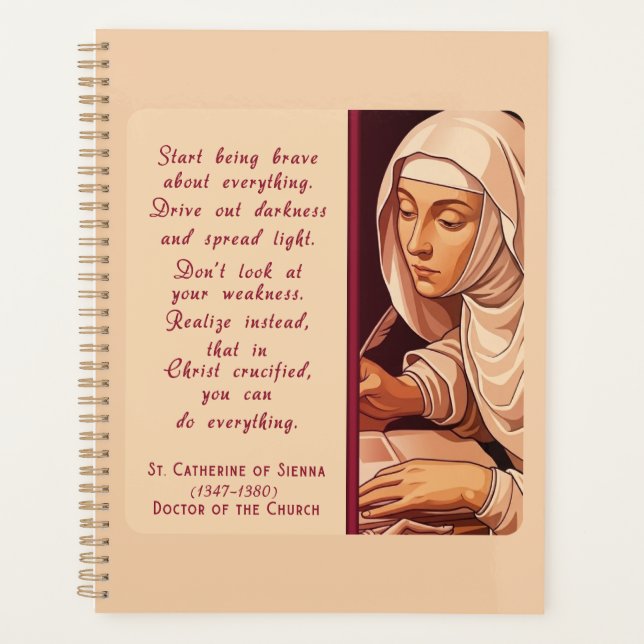 Start being brave
about everything.
Drive out darkness
and spread light.
Don't look at
your weakness.
Realize instead,
that in
Christ crucified,
you can
do everything.
St. Catherine of Sienna
(1347-1380)
Doctor of the Church